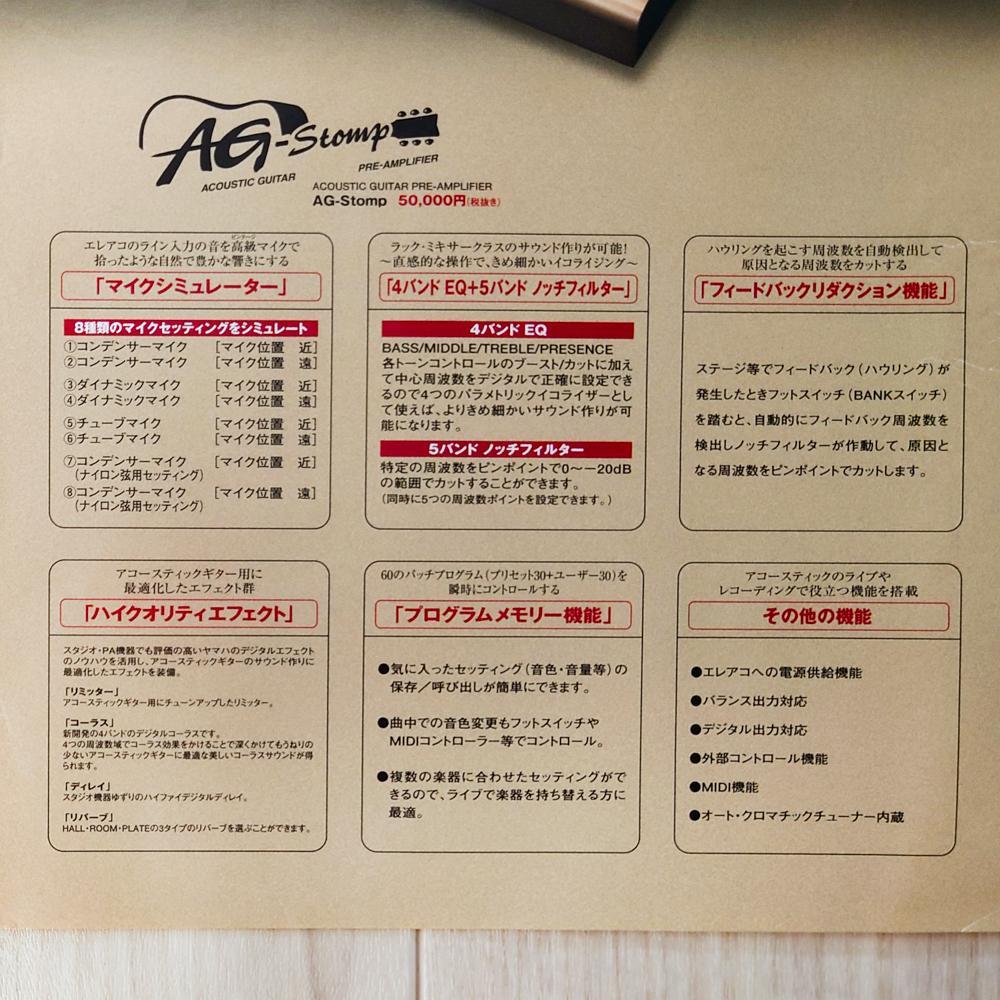 AG-Stomp
ACOUSTIC GUITAR PRE-AMPLIFIER
ACOUSTIC GUITAR PRE-AMPLIFIER
AG-Stomp 50,000円(税抜き)
エレアコのライン入力の音を高級マイクで
ビンテージ
拾ったような自然で豊かな響きにする
「マイクシミュレーター」
8種類のマイクセッティングをシミュレート
①コンデンサーマイク [マイク位置 近]
②コンデンサーマイク [マイク位置 遠]
③ダイナミックマイク [マイク位置 近]
④ダイナミックマイク [マイク位置 遠]
⑤チューブマイク [マイク位置 近]
⑥チューブマイク [マイク位置 遠]
⑦コンデンサーマイク [マイク位置 近]
(ナイロン弦用セッティング)
⑧コンデンサーマイク [マイク位置 遠]
(ナイロン弦用セッティング)
ラック・ミキサークラスのサウンド作りが可能!
～直感的な操作で、きめ細かいイコライジング～
「4バンド EQ+5バンド ノッチフィルター」
4バンド EQ
BASS/MIDDLE/TREBLE/PRESENCE
各トーンコントロールのブースト/カットに加え
て中心周波数をデジタルで正確に設定でき
るので4つのパラメトリックイコライザーとし
て使えば、よりきめ細かいサウンド作りが可
能になります。
5バンド ノッチフィルター
特定の周波数をピンポイントで0～-20dB
の範囲でカットすることができます。
(同時に5つの周波数ポイントを設定できます。)
ハウリングを起こす周波数を自動検出して
原因となる周波数をカットする
「フィードバックリダクション機能」
ステージ等でフィードバック(ハウリング)が
発生したときフットスイッチ(BANKスイッチ)
を踏むと、自動的にフィードバック周波数を
検出しノッチフィルターが作動して、原因と
なる周波数をピンポイントでカットします。
アコースティックギター用に
最適化したエフェクト群
「ハイクオリティエフェクト」
スタジオ・PA機器でも評価の高いヤマハのデジタルエフェクト
のノウハウを活用し、アコースティックギターのサウンド作りに
最適化したエフェクトを装備。
「リミッター」
アコースティックギター用にチューンアップしたリミッター。
「コーラス」
新開発の4バンドのデジタルコーラスです。
4つの周波数域でコーラス効果をかけることで深くかけてもうねりの
少ないアコースティックギターに最適な美しいコーラスサウンドが得
られます。
「ディレイ」
スタジオ機器ゆずりのハイファイデジタルディレイ。
「リバーブ」
HALL・ROOM・PLATEの3タイプのリバーブを選ぶことができます。
60のパッチプログラム(プリセット30+ユーザー30)を
瞬時にコントロールする
「プログラムメモリー機能」
●気に入ったセッティング(音色・音量等)の
保存／呼び出しが簡単にできます。
●曲中での音色変更もフットスイッチや
MIDIコントローラー等でコントロール。
●複数の楽器に合わせたセッティングがで
きるので、ライブで楽器を持ち替える方に
最適。
アコースティックのライブや
レコーディングで役立つ機能を搭載
その他の機能
●エレアコへの電源供給機能
●バランス出力対応
●デジタル出力対応
●外部コントロール機能
●MIDI機能
●オート・クロマチックチューナー内蔵